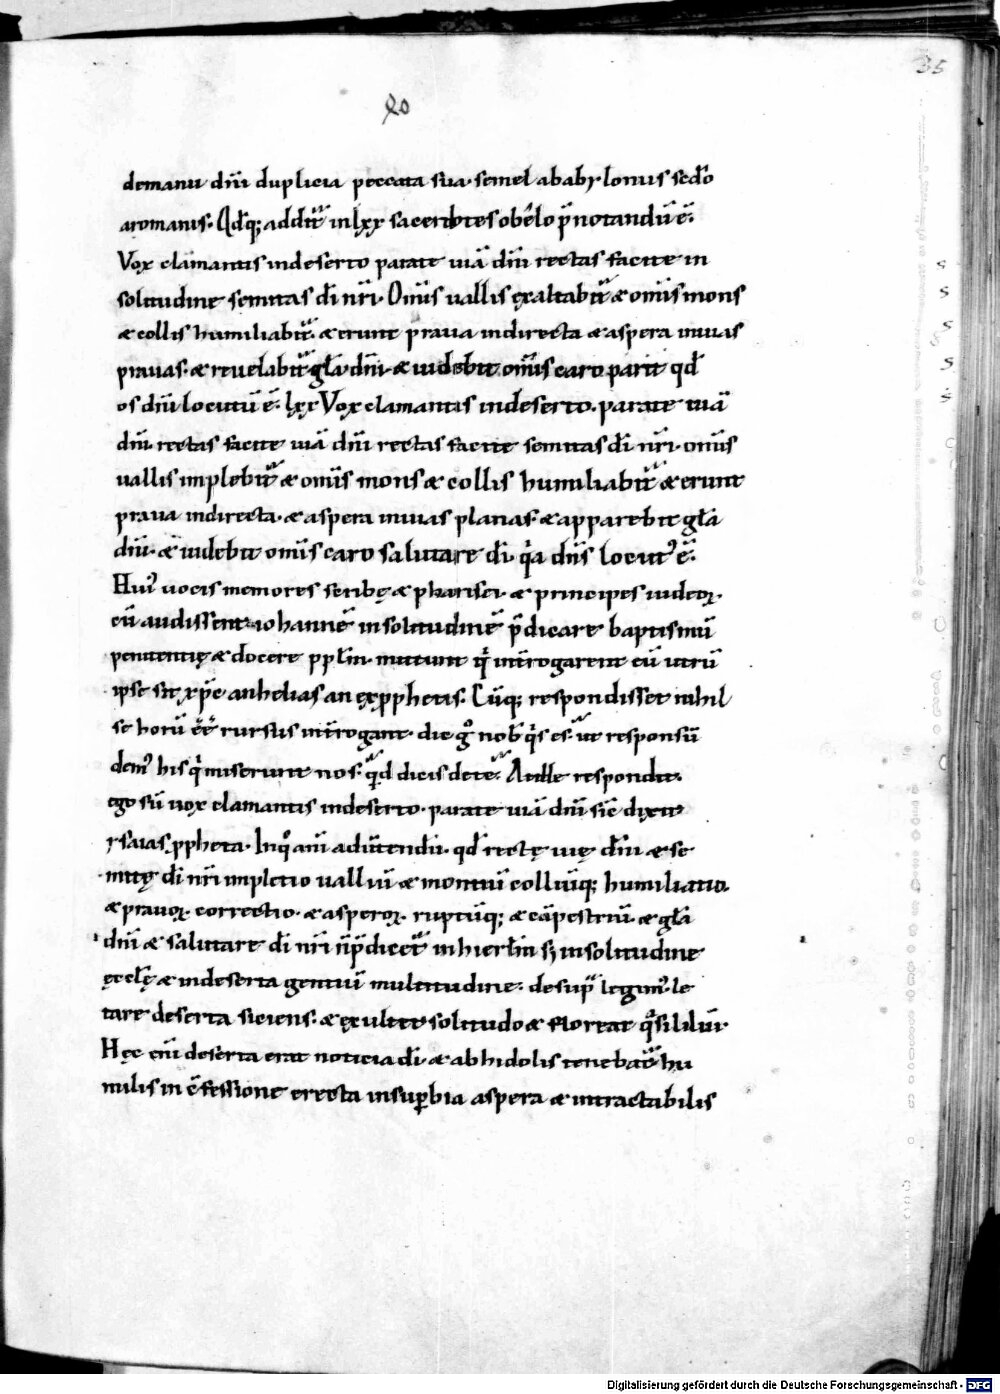 35
demanu dñi duplicia peccata sua· semel ababylonus sedo
aromanis· Qđq; addit᷑ inlxx sacerdotes obelo p̄notandū ē·
Vox clamantis indeserto parate uiā dñi rectas facite in
solitudine semitas dī nr̄i· Om̄is uallis ęxaltabit᷑ & om̄is mons
& collis humiliabit᷑· & erunt praua indirecta & aspera inuias
prauas· & reuelabit᷑ gl̄a dñi· & uidebit om̄is caro parit̄ qđ
os dñi locutū ē· lxx Vox clamantis indeserto· parate uiā
dñi· rectas facite uiā dñi rectas facite semitas dī nr̄i· om̄is
uallis implebit᷑ & om̄is mons & collis humiliabit᷑ & erunt
praua indirecta· & aspera inuias planas· & apparebit gl̄a
dñi· & uidebit om̄is caro salutare dī· q̄a dñs locut᷒ ē·
Hui᷒ uocis memores scribę & pharisei· & principes iudeoꝝ·
cū audissent iohannē insolitudinē p̄dicare baptismū
penitentię & docere ppl̄m· mittunt q̄ intr̄ogarent eū utrū
ipse sit xp̄c an helias an ęxpphetis· Cūq; respondisset nihil
se horū eē̄ rursus intr̄ogant· dic gͦ nob̄ q̄s es· ut responsū
dem᷒ his q̄ miserunt nos· q̄d dicis dete· At ille respondit·
ego sū uox clamantis indeserto· parate uiā dñi sic̄ dixit
ysaias ppheta· Inqͦ anī aduertendū· qđ rectę uię dñi & se
mitę dī nr̄i impletio palliū & montiū colliūq; humiliatio
& prauoꝝ correctio· & asperoꝝ ruptūq; & cāpestriū· & gl̄a
dñi & salutare dī nr̄i n̄p̄dicet᷑ inhierl̄m sꝫ insolitudine
ęccl̄ę & indeserta gentiū multitudine· desup̄ legim᷒· le
tare deserta siciens· & ęxultet solitudo & floreat q̄silіliū·
Hęc eni deserta erat noticia dī· & abhidolis tenebat᷑ hu
milis in c̄fessione erecta insupbia aspera & intractabilis
Digitalisierung gefördert durch die Deutsche Forschungsgemeinschaft - DFG